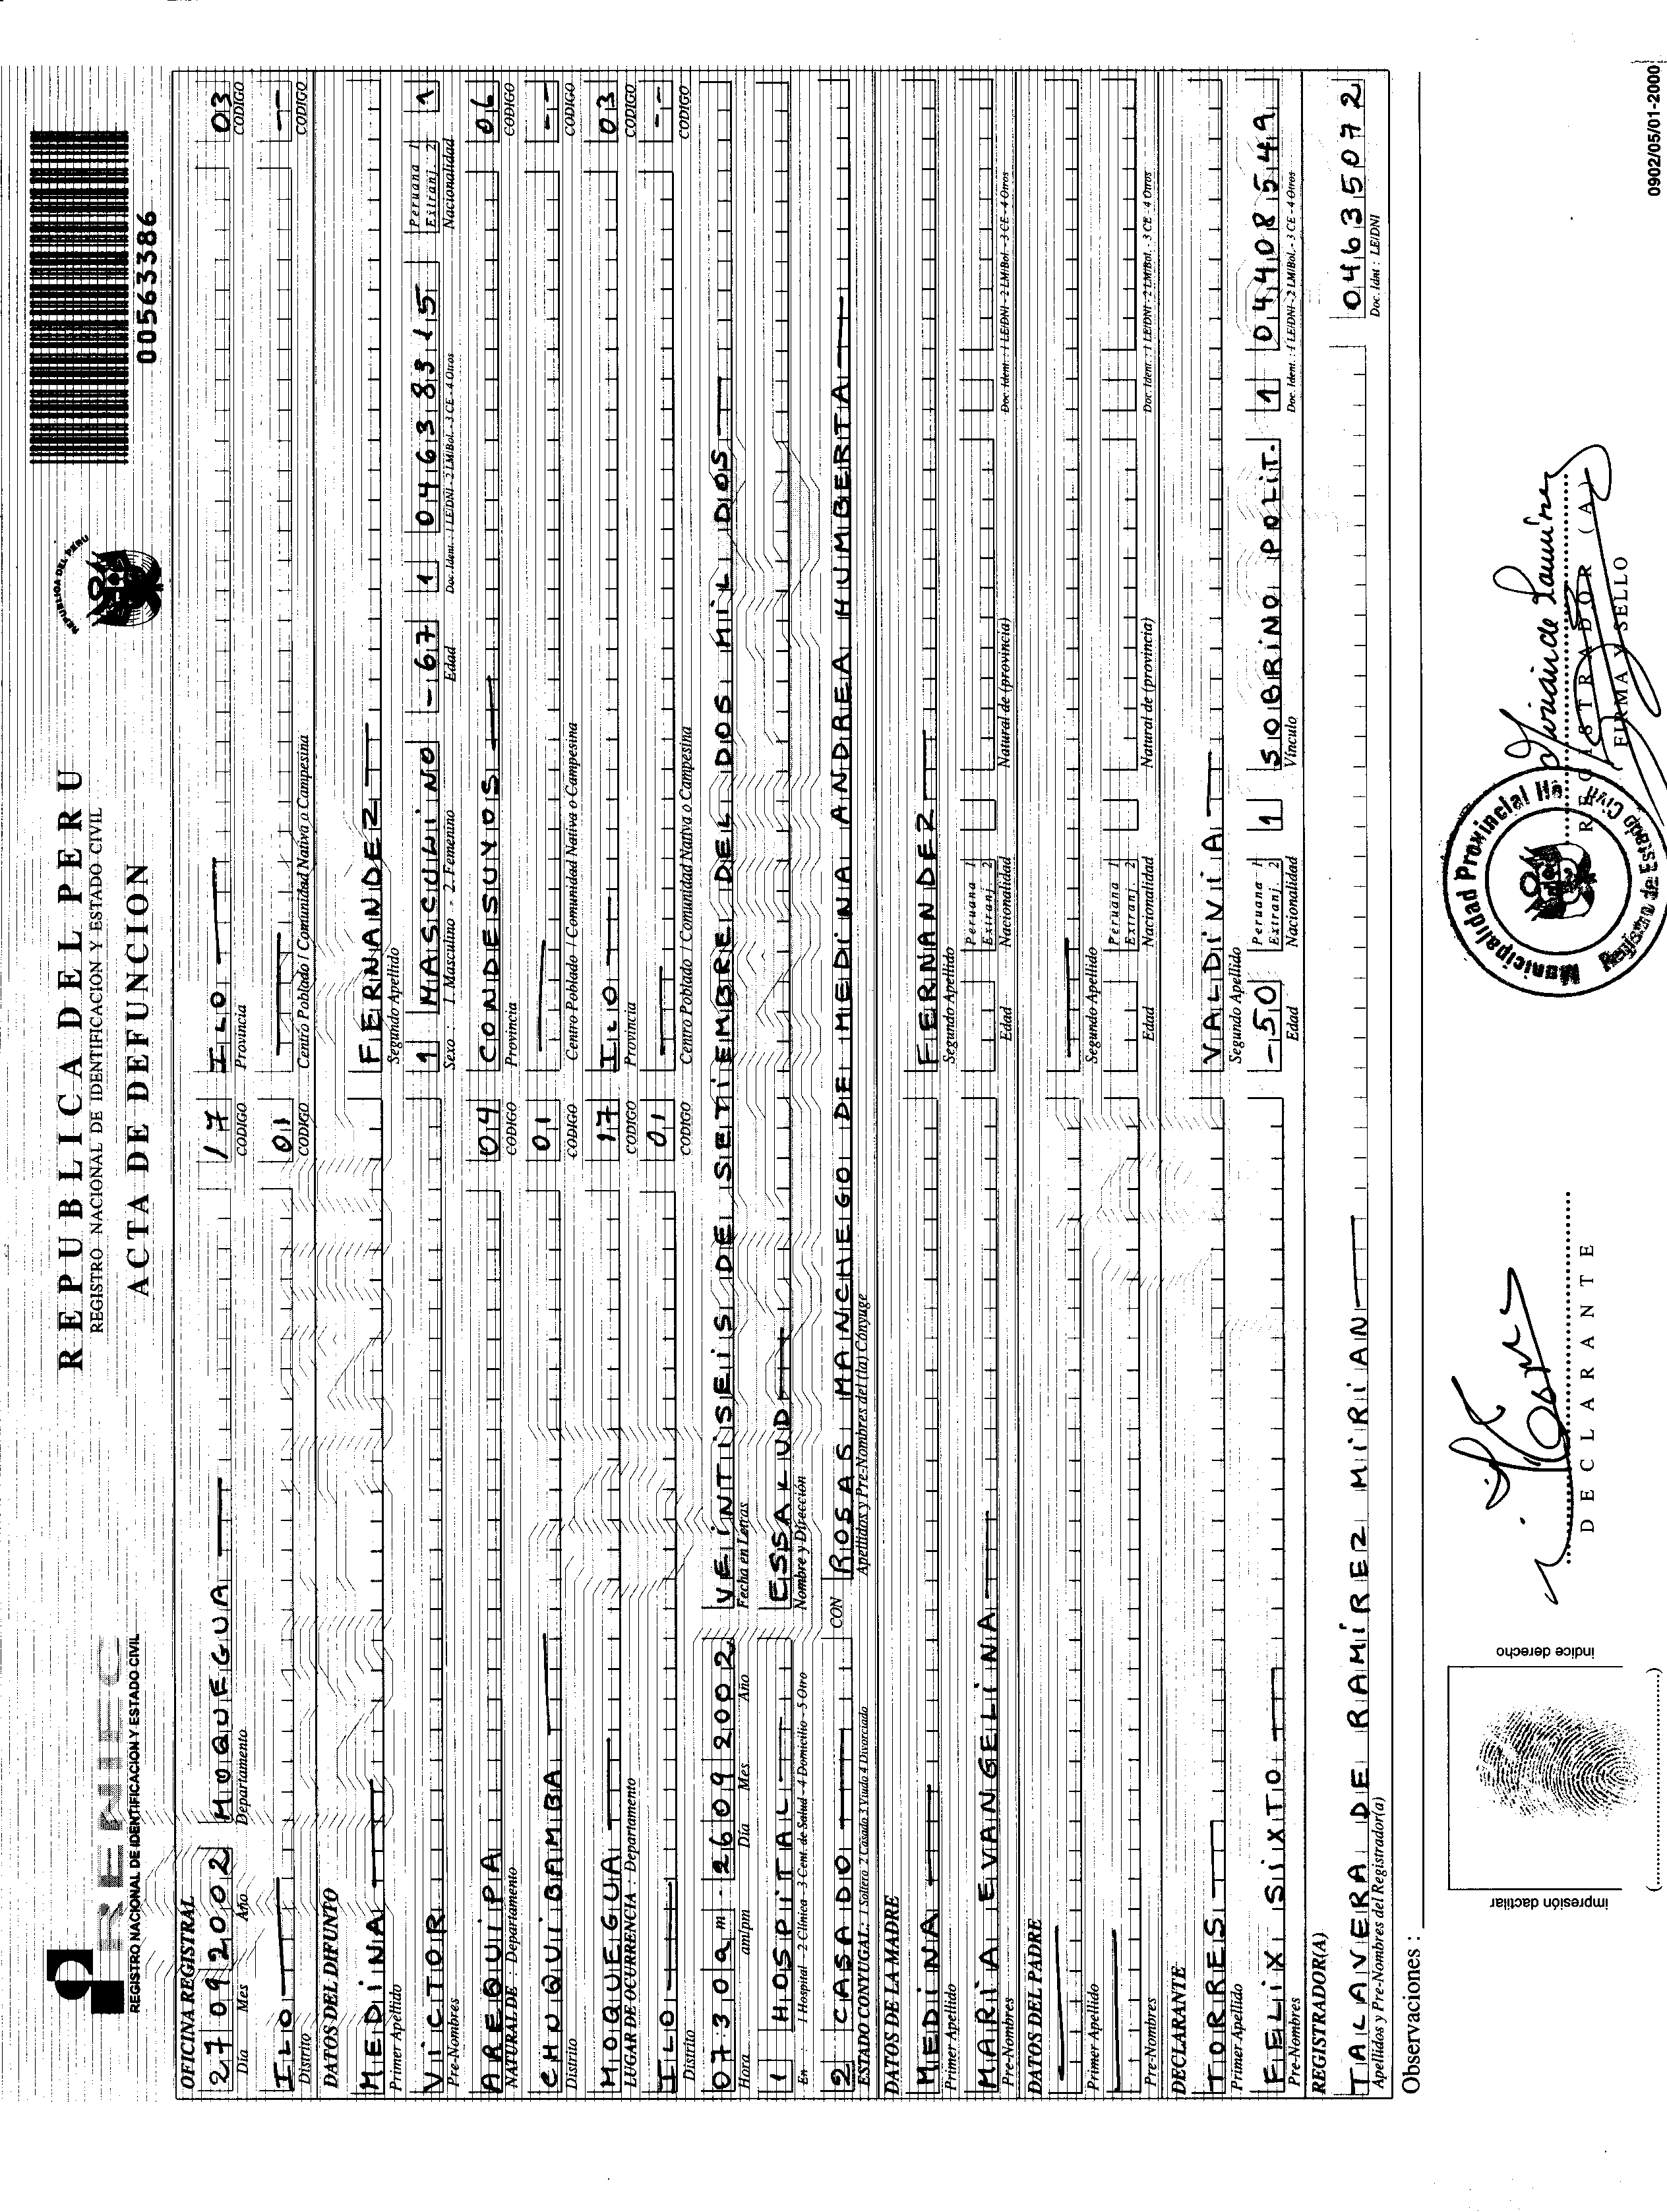 REPUBLICA DEL PERU
REGISTRO NACIONAL DE IDENTIFICACION Y ESTADO CIVIL
ACTA DE DEFUNCION
RENIEC
REGISTRO NACIONAL DE IDENTIFICACION Y ESTADO CIVIL
REPUBLICA DEL PERU
00563386
OFICINA REGISTRAL
27 09 2002 MOQUEGUA 17 ILO 03
Día Mes Año Departamento CODIGO Provincia CODIGO
ILO 01 --
Distrito CODIGO Centro Poblado / Comunidad Nativa o Campesina CODIGO
DATOS DEL DIFUNTO
MEDINA FERNANDEZ
Primer Apellido Segundo Apellido
VICTOR 1 MASCULINO -67 1 04638315 Peruana 1 Extranj. 2 1
Pre-Nombres Sexo : 1. Masculino - 2. Femenino Edad Doc. Ident. : 1 LE/DNI - 2 LM/Bol. - 3 CE - 4 Otros Nacionalidad
AREQUIPA 04 CONDESUYOS 06
NATURAL DE : Departamento CODIGO Provincia CODIGO
CHUQUIBAMBA 01 --
Distrito CODIGO Centro Poblado / Comunidad Nativa o Campesina CODIGO
MOQUEGUA 17 ILO 03
LUGAR DE OCURRENCIA : Departamento CODIGO Provincia CODIGO
ILO 01 --
Distrito CODIGO Centro Poblado / Comunidad Nativa o Campesina CODIGO
07:30 am. 26 09 2002 VEINTISEIS DE SETIEMBRE DEL DOS MIL DOS
Hora am/pm Día Mes Año Fecha en Letras
1 HOSPITAL ESSALUD
En : 1 Hospital - 2 Clínica - 3 Cent. de Salud - 4 Domicilio - 5 Otro Nombre y Dirección
2 CASADO CON ROSAS MANCHEGO DE MEDINA ANDREA HUMBERTA
ESTADO CONYUGAL : 1 Soltero 2 Casado 3 Viudo 4 Divorciado Apellidos y Pre-Nombres del (la) Cónyuge
DATOS DE LA MADRE
MEDINA FERNANDEZ
Primer Apellido Segundo Apellido
MARIA EVANGELINA Peruana 1 Extranj. 2
Pre-Nombres Edad Nacionalidad Natural de (provincia) Doc. Ident. : 1 LE/DNI - 2 LM/Bol. - 3 CE - 4 Otros
DATOS DEL PADRE
Primer Apellido Segundo Apellido
Peruana 1 Extranj. 2
Pre-Nombres Edad Nacionalidad Natural de (provincia) Doc. Ident. : 1 LE/DNI - 2 LM/Bol. - 3 CE - 4 Otros
DECLARANTE
TORRES VALDIVIA
Primer Apellido Segundo Apellido
FELIX SIXTO -50 Peruana 1 Extranj. 2 1 SOBRINO POLIT. 1 04408549
Pre-Nombres Edad Nacionalidad Vínculo Doc. Ident. : 1 LE/DNI - 2 LM/Bol. - 3 CE - 4 Otros
REGISTRADOR(A)
TALAVERA DE RAMIREZ MIRIAN 04635072
Apellidos y Pre-Nombres del Registrador(a) Doc. Idnt : LE/DNI
Observaciones :
impresión dactilar
índice derecho
DECLARANTE
Municipalidad Provincial Ilo
Registro de Estado Civil
REGISTRADOR (A)
FIRMA Y SELLO
0902/05/01-2000